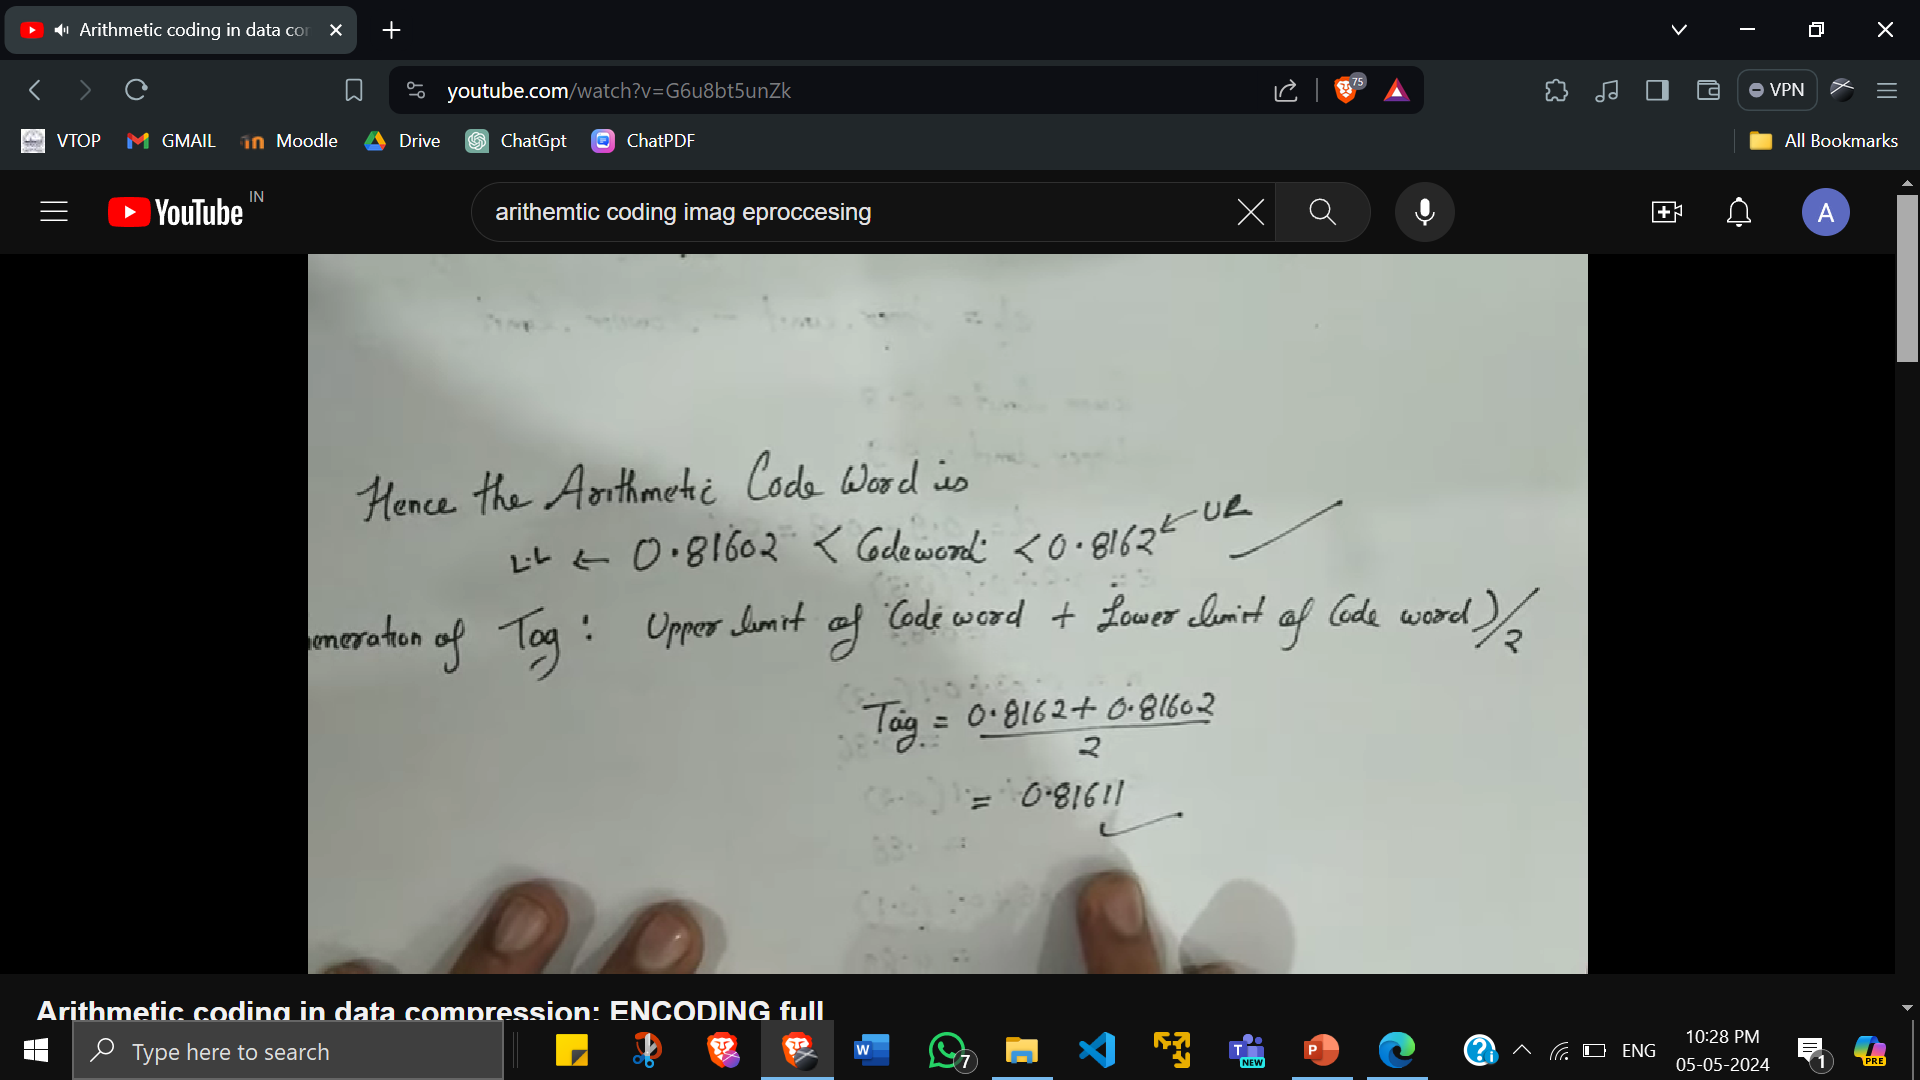 Arithmetic coding in data cor
youtube.com/watch?v=G6u8bt5unZk
75
VPN
VTOP
GMAIL
Moodle
Drive
ChatGpt
ChatPDF
All Bookmarks
YouTube IN
arithemtic coding imag eproccesing
A
Hence the Arithmetic Code Word is
L·L ← 0.81602 < Codeword < 0.8162 ← UL
eneration of Tag : Upper limit of Code word + Lower limit of Code word)/2
Tag = 0.8162 + 0.81602
2
= 0.81611
Arithmetic coding in data compression: ENCODING full
Type here to search
7
NEW
ENG
10:28 PM
05-05-2024
1
PRE